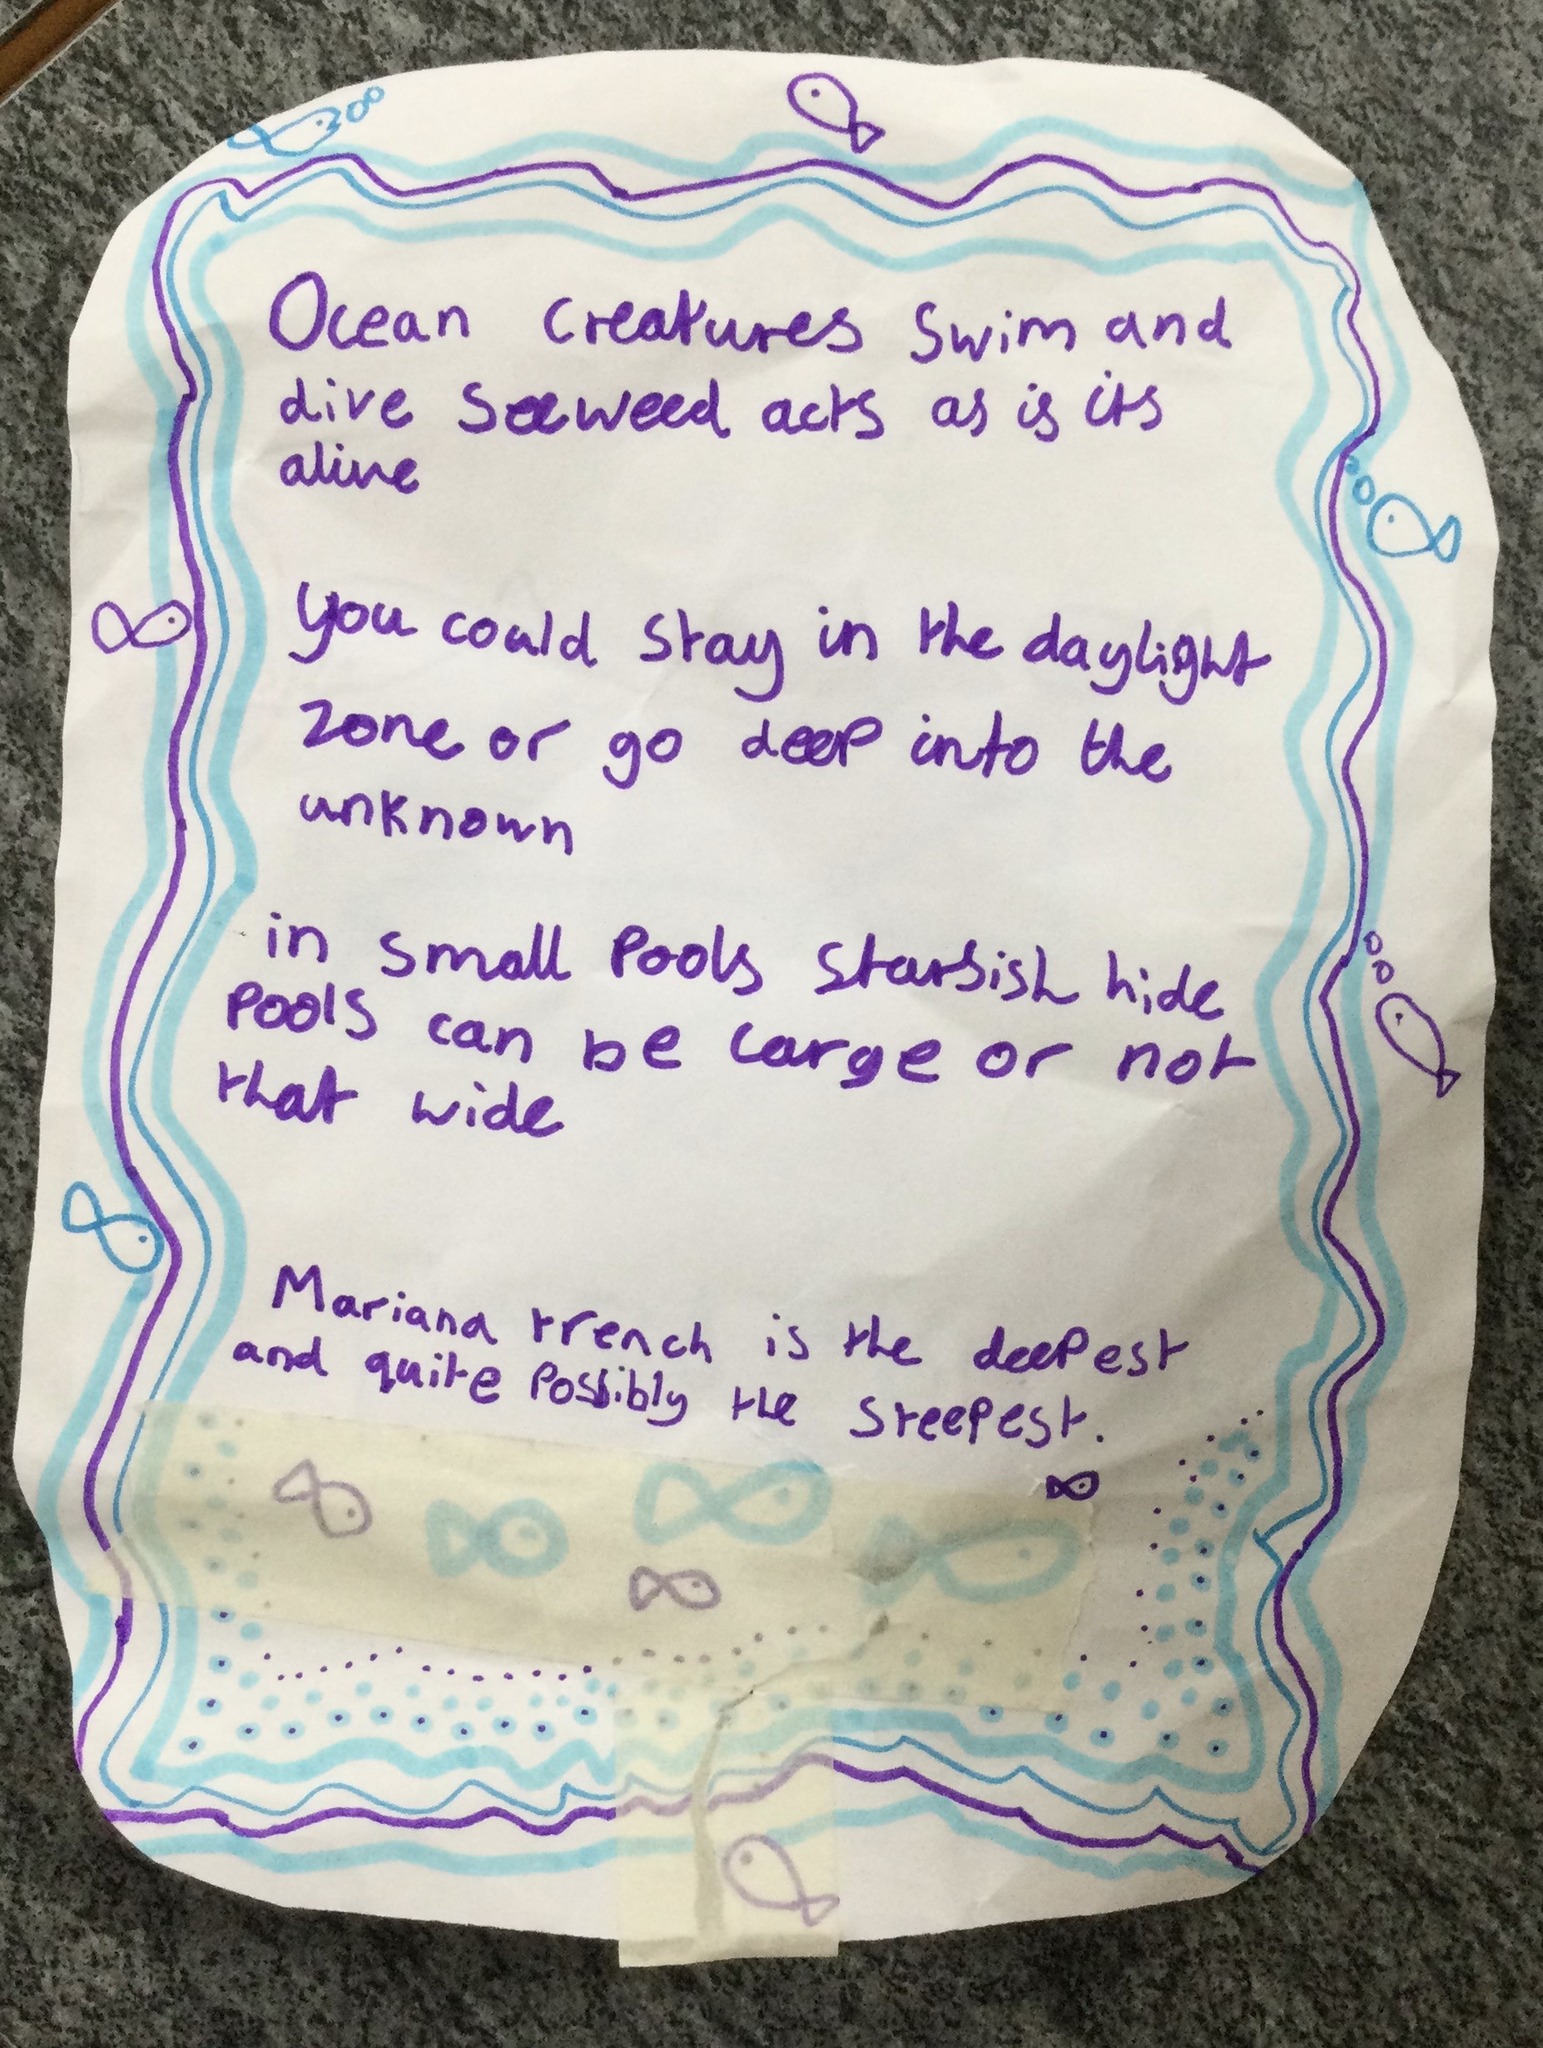 Ocean creatures swim and
dive Seaweed acts as is its
alive
you could stay in the daylight
zone or go deep into the
unknown
in small Pools starfish hide
Pools can be large or not
that wide
Mariana trench is the deepest
and quite Possibly the steepest.